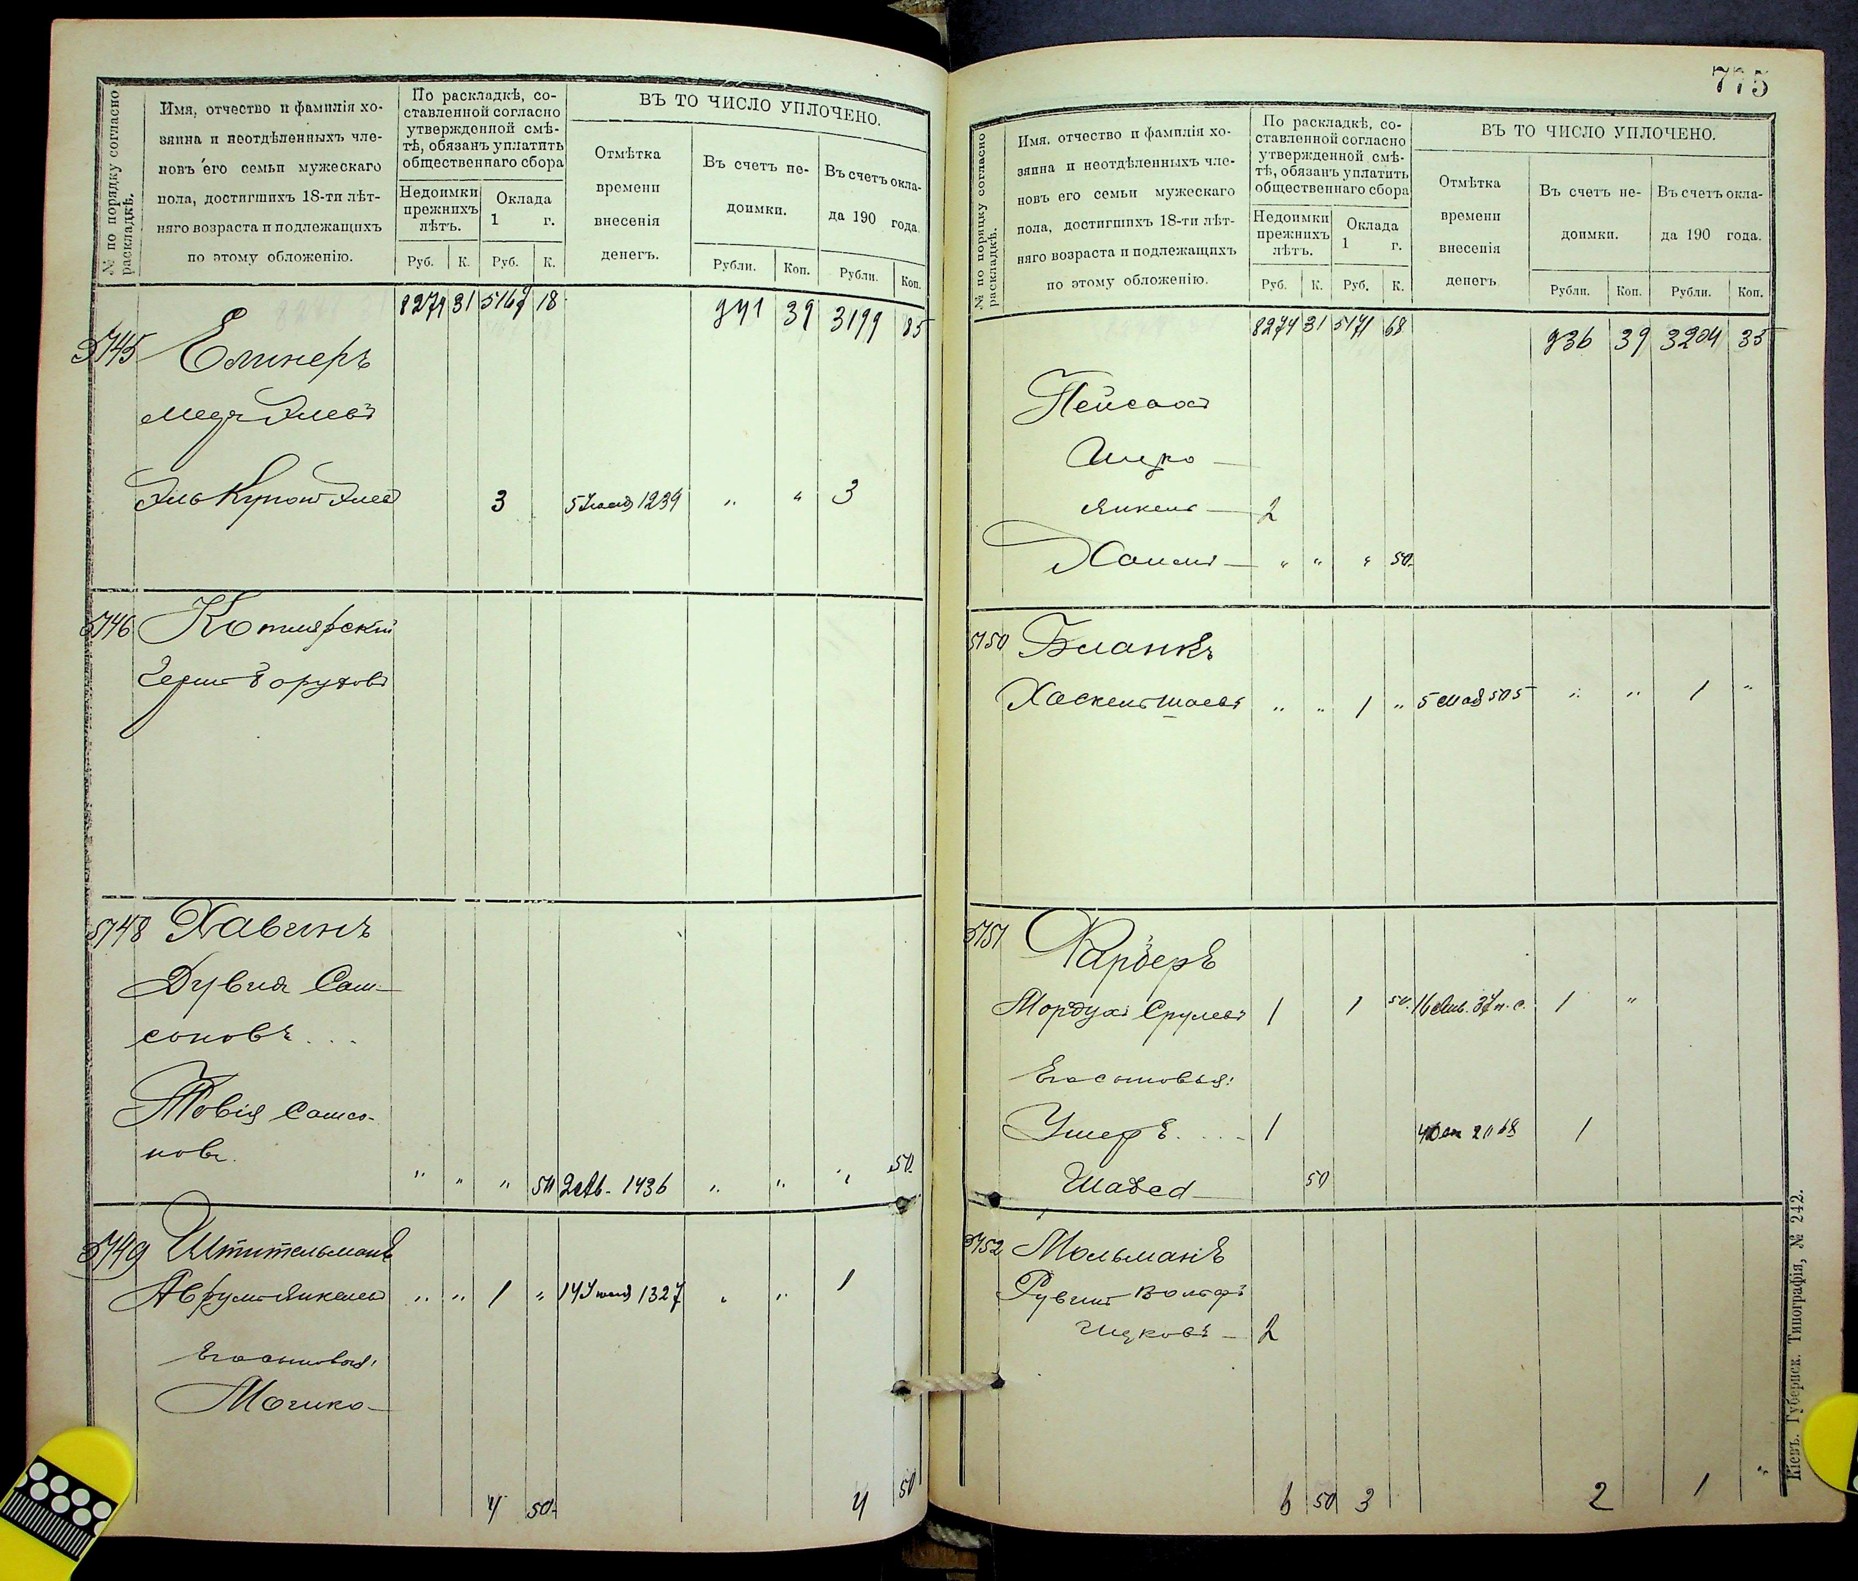 № по порядку согласно раскладкѣ.
Имя, отчество и фамилія хо-
зяина и неотдѣленныхъ чле-
новъ его семьи мужескаго
пола, достигшихъ 18-ти лѣт-
няго возраста и подлежащихъ
по этому обложенію.
По раскладкѣ, со-
ставленной согласно
утвержденной смѣ-
тѣ, обязанъ уплатить
общественнаго сбора
Недоимки прежнихъ лѣтъ.
Оклада 1 г.
Руб. К. Руб. К.
ВЪ ТО ЧИСЛО УПЛОЧЕНО.
Отмѣтка
времени
внесенія
денегъ.
Въ счетъ не-
доимки.
Въ счетъ окла-
да 190 года.
Рубли. Коп. Рубли. Коп.
8274 31 5167 18 941 39 3199 85
5745 Елинеръ
Элевъ
3 1239 „ „ 3
5746 Котлярскій
Герш Борухов
5748 Хавинъ
Дувид Сам-
соновъ . . .
Товія Самсо-
новъ.
„ „ „ 50 2 Ав. 1436 „ „ „ 50
5749 Штительманъ
Аврум Янкелев „ „ 1 „ 14 Іюня 1327 „ „ 1
Его сыновья:
Мошко
4 50 4 50
775
№ по порядку согласно раскладкѣ.
Имя, отчество и фамилія хо-
зяина и неотдѣленныхъ чле-
новъ его семьи мужескаго
пола, достигшихъ 18-ти лѣт-
няго возраста и подлежащихъ
по этому обложенію.
По раскладкѣ, со-
ставленной согласно
утвержденной смѣ-
тѣ, обязанъ уплатить
общественнаго сбора
Недоимки прежнихъ лѣтъ.
Оклада 1 г.
Руб. К. Руб. К.
ВЪ ТО ЧИСЛО УПЛОЧЕНО.
Отмѣтка
времени
внесенія
денегъ
Въ счетъ не-
доимки.
Въ счетъ окла-
да 190 года.
Рубли. Коп. Рубли. Коп.
8274 31 5171 68 936 39 3204 35
Пейсах
Ицко
Янкель 2
Хаим „ „ „ 50
5750 Бланкъ
Хаскель Шаев „ „ 1 „ 5 Мая 505 „ „ 1 „
5751 Фарберъ
Мордух Срулев 1 1 50 1 „
Его сыновья:
Ушеръ . . . 1 2068 1
50
5752 Мольманъ
Рувин Вольф
Ицков 2
6 50 3 2 1 „
Кіевъ. Губернск. Типографія, № 242.